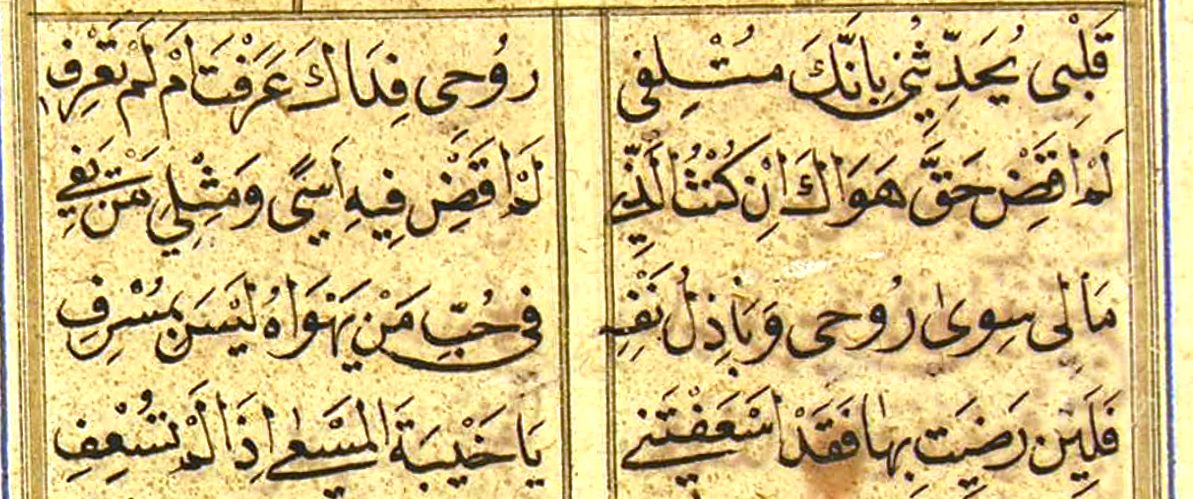 قَلْبِى يُحَدِّثُنِى بِاَنَّكَ مُتْلِفِى رُوُحِى فِدَاكَ عَرَفْتَ اَمْ لَمْ تَعْرِفِ
لَمْ اَقْضِ حَقَّ هَوَاكَ اِنْ كُنْتُ الَّذِى لَمْ اَقْضِ فِيهِ اَسًى وَمِثْلِى مَنْ يَفِى
مَا لِى سِوىٰ رُوُحِى وَبَاذِلُ نَفْسِهِ فِى حُبِّ مَنْ يَهْوَاهُ لَيْسَ بِمُسْرِفِ
فَلَئِنْ رَضِيَتِ بِهَا فَقَدْ اَسْعَفْتَنِى يَا خَيْبَةَ الْمَسْعٰى اِذَا لَمْ تُسْعِفِ